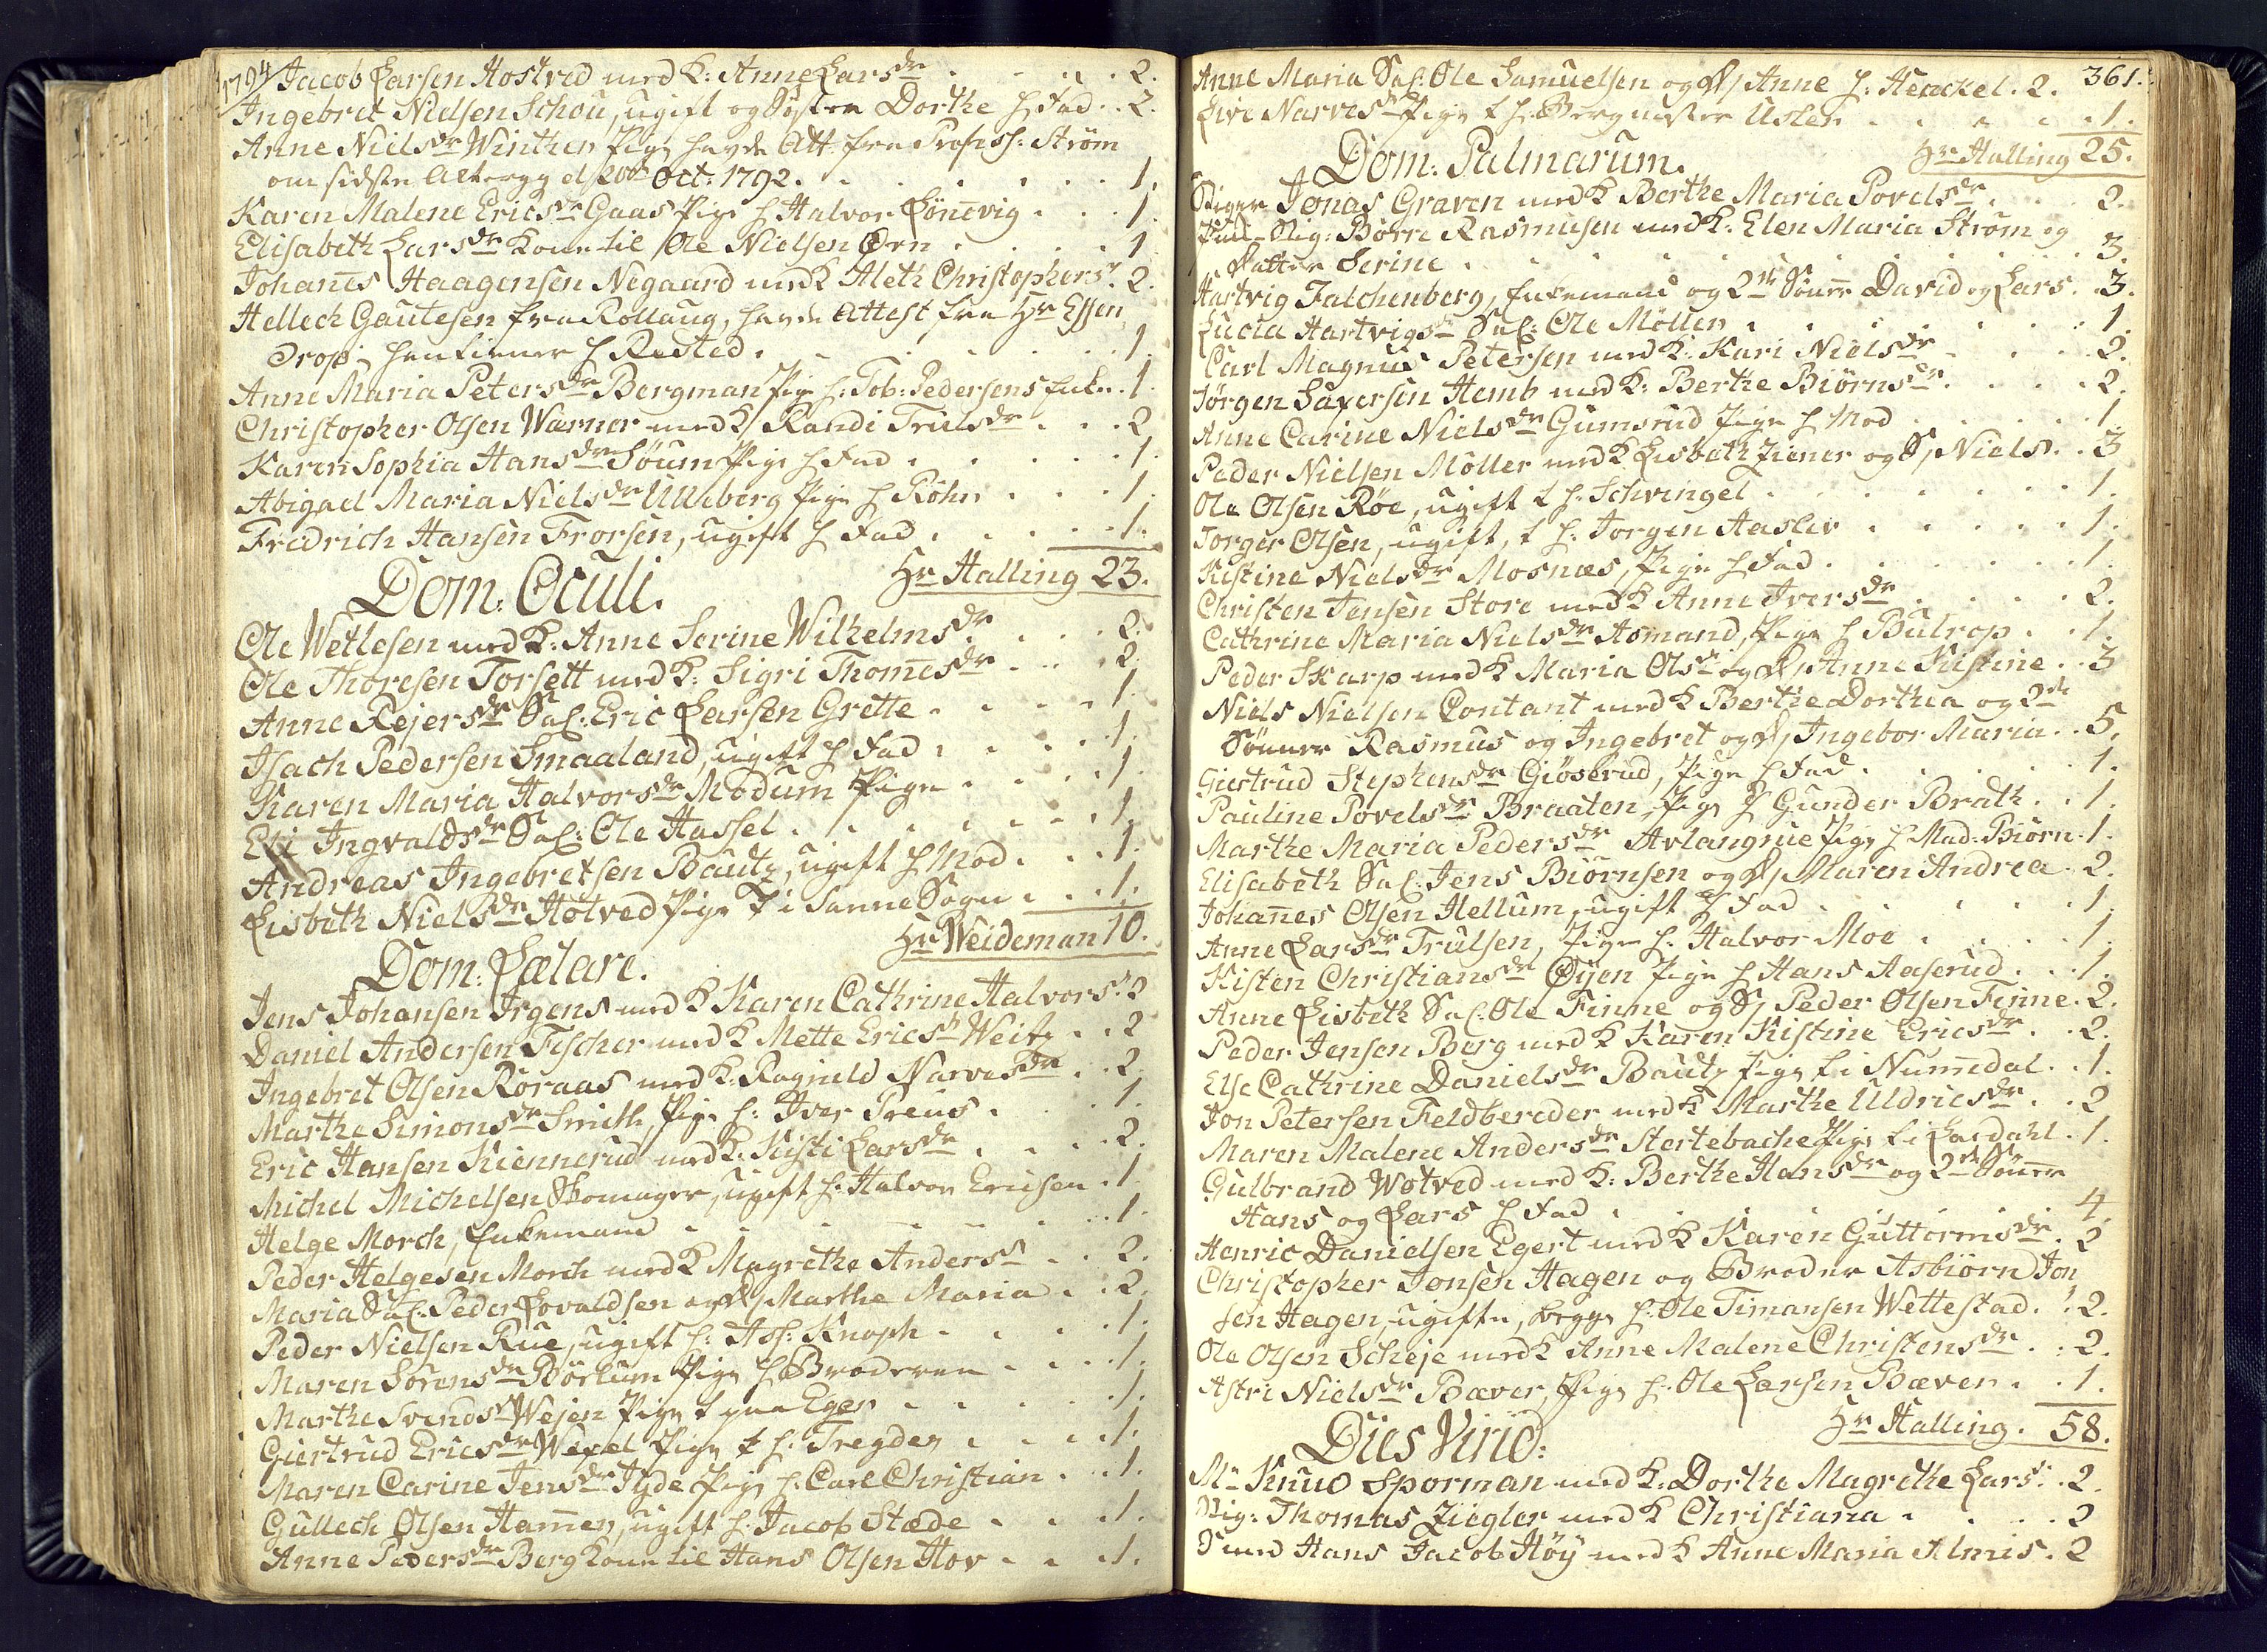 1794 Jacob Larsen Hostved med K: Anne Larsdr . . . 2.
Ingebret Nielsen Schou, ugift og Søster Dorthe h Fad . . 2.
Anne Nielsdr Winther Pige havde Att. fra Profess: Strøm
om sidste Alterg d 20de Oct: 1792. . . . . 1.
Karen Malene Ericsdr Gaas Pige h Halvor Lönnevig . . . 1.
Elisabeth Larsdr Kone til Ole Nielsen Ørn . . . . 1
Johanes Haagensen Negaard med K Aleth Christophersdr. 2.
Hellech Gautesen fra Rollaug, havde Attest fra Hr Essen
Drop: h Rested . . . . 1.
Anne Maria Petersdr Bergman Pige h: Tob: Pedersens Enke . 1.
Christopher Olsen Warner med K Randi Trulsdr . . . 2
Karen Sophia Hansdr Søum Pige h Fad . . . . 1.
Abigael Maria Nielsdr Ulleberg Pige h Röhn . . . 1.
Fredrich Hansen Frorsen, ugift h Fad . . . . 1.
Dom: Oculi. Hr Halling 23.
Ole Wetlesen med K: Anne Serine Wilhelmsdr . . . 2.
Ole Thoresen Torsett med K: Sigri Thomesdr . . . 2.
Anne Rejersdr Sal: Eric Larsen Grette . . . . 1.
Isach Pedersen Smaaland, ugift h Fad . . . . 1.
Karen Maria Halvorsdr Modum Pige . . . . 1.
Eli Ingvaldsdr Sal: Ole Hassel . . . . 1.
Andreas Ingebretsen Bautz, ugift h Mod . . . 1.
Lisbeth Nielsdr Hotved Pige t i Sanne Sogn . . . 1.
Dom: Lætare. Hr Weideman 10.
Jens Johansen Irgens med K Karen Cathrine Halvorsdr 2
Daniel Andersen Fischer med K Mette Ericsdr Weitz . . 2
Ingebret Olsen Röraas med K: Ragnild Narvesdr . . 2.
Marthe Simonsdr Smith, Pige h: Iver Preus . . . 1.
Eric Hansen Kiennerud med K: Kisti Larsdr . . . 2.
Michel Michelsen Skomager, ugift h: Halvor Ericksen . 1
Helge Morch, Enkemand . . . . 1.
Peder Helgesen Morch med K Magrethe Andersdr . . 2.
Maria Sal: Peder Lovaldsen og D/ Marthe Maria . . 2.
Peder Nielsen Rue, ugift h: Ass: Knoph . . . . 1.
Maren Sörensdr Börlum Pige h Broderen . . . . 1.
Marthe Svendsdr Wejen Pige t paa Eger . . . . 1.
Giertrud Ericsdr Wexel Pige t h: Tregder . . . . 1.
Maren Carine Jensdr Jyde Pige h: Carl Christian . . . 1.
Gullech Olsen Hammer, ugift h: Jacob Stæde . . . 1.
Anne Pedersdr Berg Kone til Hans Olsen Hov . . . 1.
Anne Maria Sal: Ole Samuelsen og D/ Anne h: Henckel. 2. 361.
Live Narvesdr Pige t h: Bergmester Uslen . . . . 1.
Dom: Palmarum. Hr Halling 25.
Stiger Jonas Graven med K Berthe Maria Povelsdr . . . 2.
Stig: Börre Rasmusen med K: Elen Maria Strøm og
Datter Serine . . . . 3.
Hartvig Falchenberg, Enkemand og 2de Sönner David og Lars . 3.
Lucia Hartvigsdr Sal: Ole Möller . . . . 1.
Carl Magnus Petersen med K: Kari Nielsdr . . . . 2.
Jørgen Saxersen Hemb med K: Berthe Biörnsdr . . . . 2.
Anne Carine Nielsdr Gumsrud Pige h Mod . . . . 1.
Peder Nielsen Möller med K Lisbeth Ziener og S/ Niels . . 3
Ole Olsen Röe, ugift t h: Schvingel . . . . 1.
Torger Olsen, ugift, t h: Jorgen Haslev . . . . 1.
Kistine Nielsdr Mosnæs, Pige h Fad . . . . 1.
Christen Jensen Store med K Anne Iversdr . . . . 2.
Cathrine Maria Nielsdr Asmand, Pige h Bulrop . . 1.
Peder Skarp med K Maria Olsdr og D/ Anne Kistine . . 3
Niels Nielsen Contant med K Berthe Dorthea og 2de
Sönner Rasmus og Ingebret og D/ Ingebor Maria . . 5.
Giertrud Stephensdr Giöslerud, Pige h Fad . . . . 1.
Pauline Povelsdr Braaten, Pige h Gunder Brath . . 1.
Marthe Maria Pedersdr Avlangrue Pige h Mad: Biörn . 1.
Elisabeth Sal: Jens Biörnsen og D/ Maren Andrea . 2.
Johanes Olsen Hellum, ugift h Fad . . . . 1.
Anne Larsdr Trulsen, Pige h: Halvor Moe . . . . 1.
Kisten Christiansdr Öyen Pige h Hans Aaserud . . . 1.
Anne Lisbeth Sal: Ole Finne og S/ Peder Olsen Finne . 2.
Peder Jensen Berg med K Karen Kistine Ericsdr . . . 2.
Else Cathrine Danielsdr Bautz Pige t i Numedal . . 1.
Jon Petersen Feldbereder med K Marthe Uldricsdr . . . 2
Maren Malene Andersdr Stertebache Pige t i Lardahl . 1.
Gulbrand Wotved med K: Berthe Hansdr og 2de Sönner
Hans og Lars h Fad . . . . 4.
Henric Danielsen Egert med K Karen Guttormsdr . 2
Christopher Jonsen Hagen og Broder Asbiörn Jon
sen Hagen, ugifte, begge h: Ole Timansen Wettestad . 2.
Ole Olsen Scheje med K Anne Malene Christensdr . . 2.
Astri Nielsdr Bæver, Pige h: Ole Larsen Bæver . . 1.
Dies Virid: Hr Halling. 58.
Mr Knud Sporman med K: Dorthe Magrethe Larsdr . 2.
Stig: Thomas Ziegler med K Christiana . . . . 2
Hans Jacob Höy med K Anne Maria Almis . 2